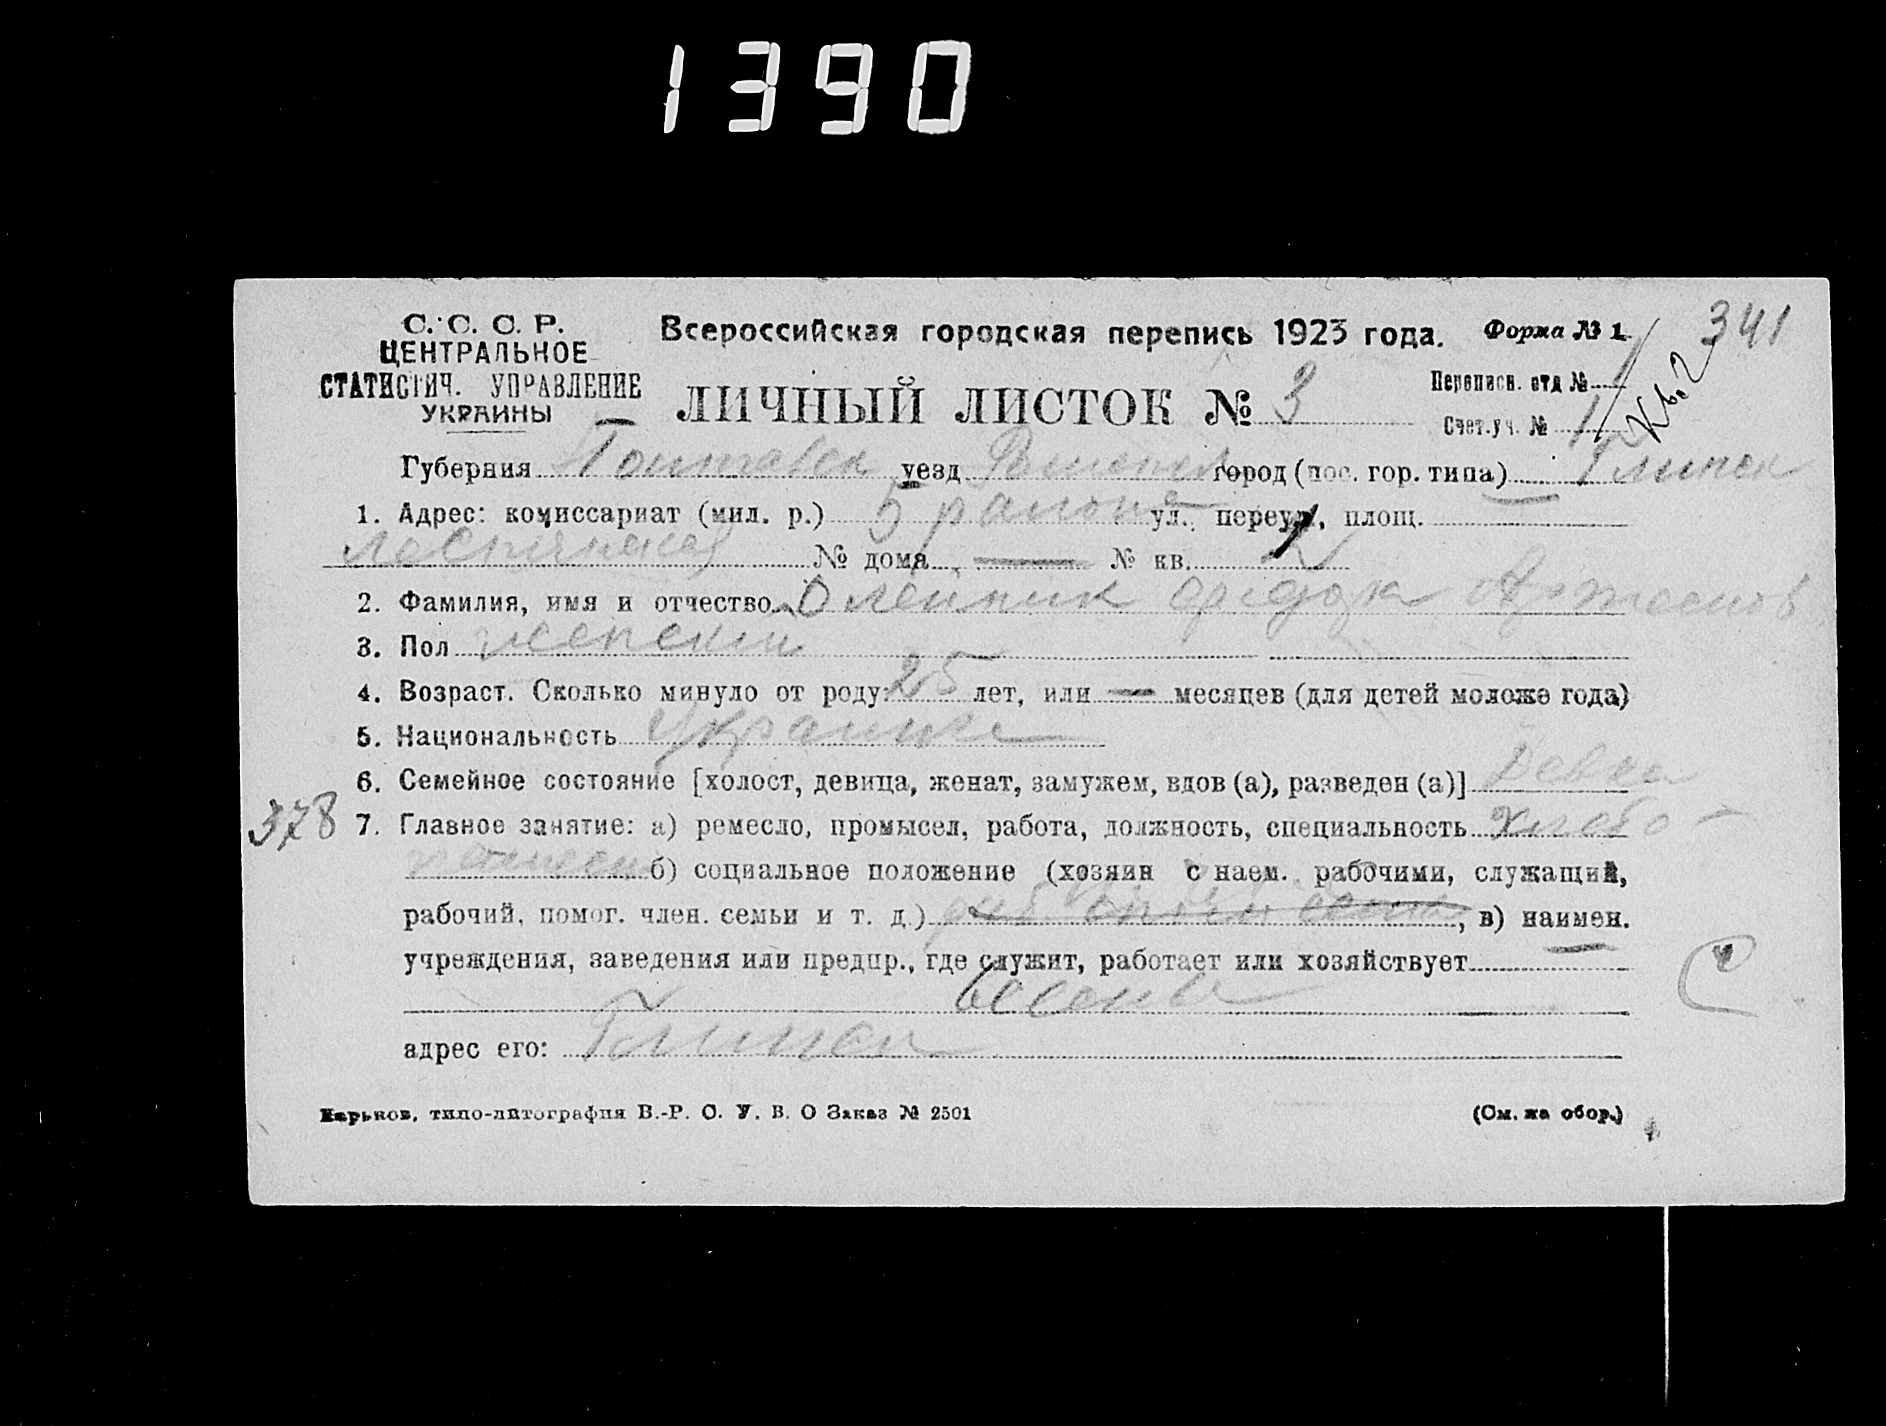 1390
341
С. С. С. Р.
ЦЕНТРАЛЬНОЕ
СТАТИСТИЧ. УПРАВЛЕНИЕ
УКРАИНЫ
Всероссийская городская перепись 1923 года. Форма № 1
ЛИЧНЫЙ ЛИСТОК № 3
Переписн. отд № 1
Счет. уч. № 1
Кв. 2
Губерния Полтавск уезд город (пос. гор. типа) Глинск
1. Адрес: комиссариат (мил. р.) 5 района ул., переул., площ.
№ дома — № кв. 2
2. Фамилия, имя и отчество Олейник
3. Пол женский
4. Возраст. Сколько минуло от роду: 25 лет, или — месяцев (для детей моложе года)
5. Национальность Украинка
6. Семейное состояние [холост, девица, женат, замужем, вдов (а), разведен (а)] Девка
378 7. Главное занятие: а) ремесло, промысел, работа, должность, специальность хлебо-
б) социальное положение (хозяин с наем. рабочими, служащий,
рабочий, помог. член. семьи и т. д.) , в) наимен.
учреждения, заведения или предпр., где служит, работает или хозяйствует
адрес его: Глинск
Харьков, типо-литография В.-Р. С. У. В. О Заказ № 2501
(См. на обор.)